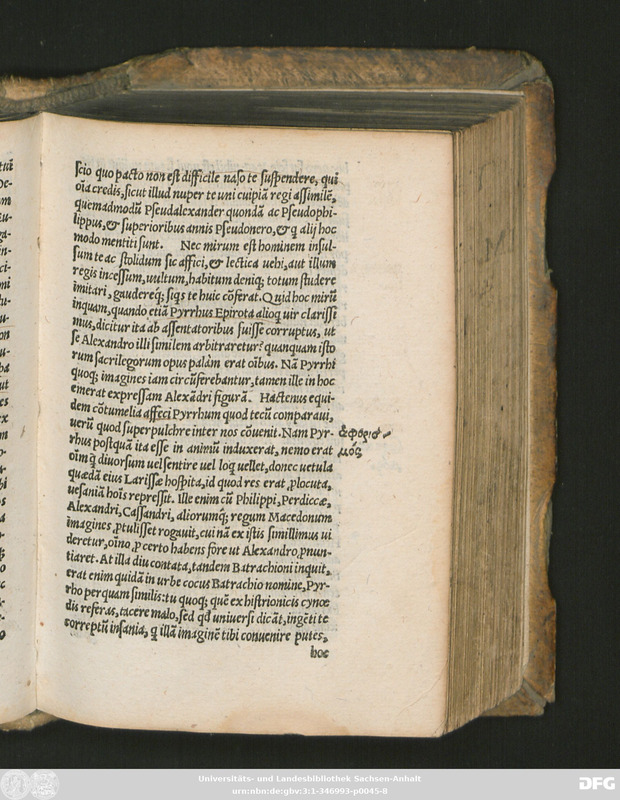 scio quo pacto non est difficile naso te suspendere, qui
oĩa credis, sicut illud nuper te uni cuipiã regi assimilẽ,
quemadmodũ Pseudalexander quondã ac Pseudophi-
lippus, & superioribus annis Pseudonero, & q alij hoc
modo mentiti sunt. Nec mirum est hominem insul-
sum te ac stolidum sic affici, & lectica uehi, aut illum
regis incessum, uultum, habitum deniq; totum studere
imitari, gaudereq; siqs te huic cõferat. Quid hoc mirũ
inquam, quando etiã Pyrrhus Epirota alioq uir clarissi
mus, dicitur ita ab assentatoribus fuisse corruptus, ut
se Alexandro illi similem arbitraretur? quanquam isto
rum sacrilegorum opus palàm erat oĩbus. Nã Pyrrhi
quoq; imagines iam circũferebantur, tamen ille in hoc
emerat expressam Alexãdri figurã. Hactenus equi-
dem cõtumelia affeci Pyrrhum quod tecũ comparaui,
uerũ quod superpulchre inter nos cõuenit. Nam Pyr-
ἀφορισ-
rhus postquã ita esse in animũ induxerat, nemo erat
μός
oĩm q̃ diuorsum uel sentire uel loq uellet, donec uetula
quædã eius Larissæ hospita, id quod res erat ꝓlocuta,
uesaniã hoĩs repressit. Ille enim cũ Philippi, Perdiccæ,
Alexandri, Cassandri, aliorumq́; regum Macedonum
imagines ꝓtulisset rogauit, cui nã ex istis simillimus ui
deretur, oĩno, ꝓ certo habens fore ut Alexandro, ꝓnun-
tiaret. At illa diu contata, tandem Batrachioni inquit,
erat enim quidã in urbe cocus Batrachio nomine, Pyr-
rho per quam similis: tu quoq; quẽ ex histrionicis cynœ
dis referas, tacere malo, sed qd uniuersi dicãt, ingẽti te
correptũ insania, q illã imaginẽ tibi conuenire putes,
hoc
Universitäts- und Landesbibliothek Sachsen-Anhalt
urn:nbn:de:gbv:3:1-346993-p0045-8
DFG